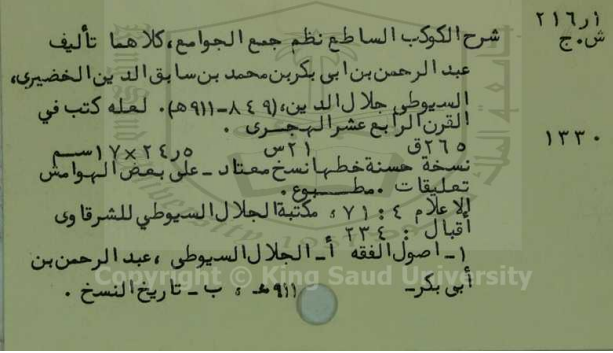 ٢١٦ر١
ش.ج
شرح الكوكب الساطع نظم جمع الجوامع، كلاهما تأليف
عبد الرحمن بن ابى بكر بن محمد بن سابق الدين الخضيرى،
السيوطى جلال الدين، (٨٤٩-٩١١هـ). لعله كتب في
القرن الرابع عشر الهجرى .
١٣٣٠
٢٦٥ق ٢١س ٢٤ر٥×١٧سم
نسخة حسنة خطها نسخ معتاد - على بعض الهوامش
تعليقات . مطبوع .
الاعلام ٤ : ٧١، مكتبة الجلال السيوطي للشرقاوى
أقبال : ٢٣٤
١- اصول الفقه أ- الجلال السيوطى ، عبد الرحمن بن
أبى بكر- ٩١١هـ ، ب - تاريخ النسخ .
Copyright © King Saud University